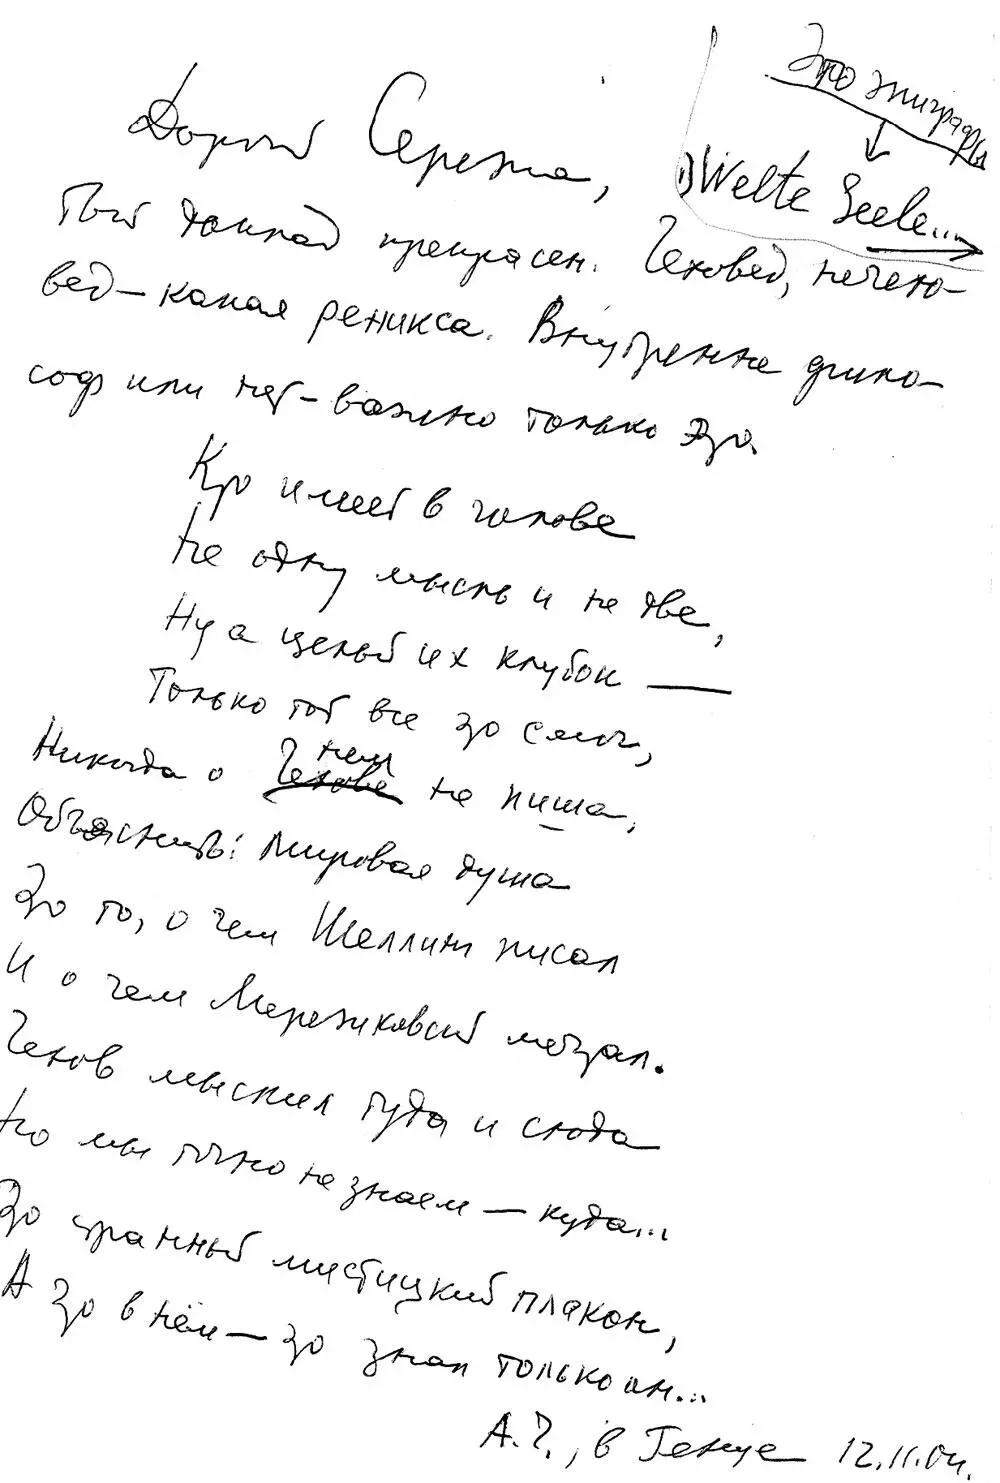 Это эпиграфы
Дорогой Сережа,
1) Welte Seele...
Твой доклад прекрасен. Чеховед, нечехо-
вед – какая реникса. Внутренне фило-
соф или нет – важно только это.
Кто имеет в голове
Не одну мысль и не две,
Ну а целый их клубок —
Только тот все это смог,
Никогда о Чехове нем не пиша,
Объяснить: Мировая душа
Это то, о чем Шеллинг писал
И о чем Мережковский мечтал.
Чехов мыслил туда и сюда
Но мы точно не знаем — куда...
Это странный мистицкий плакон,
А что в нём — то знал только он...
А.Ч., в Генуе 12.11.04.